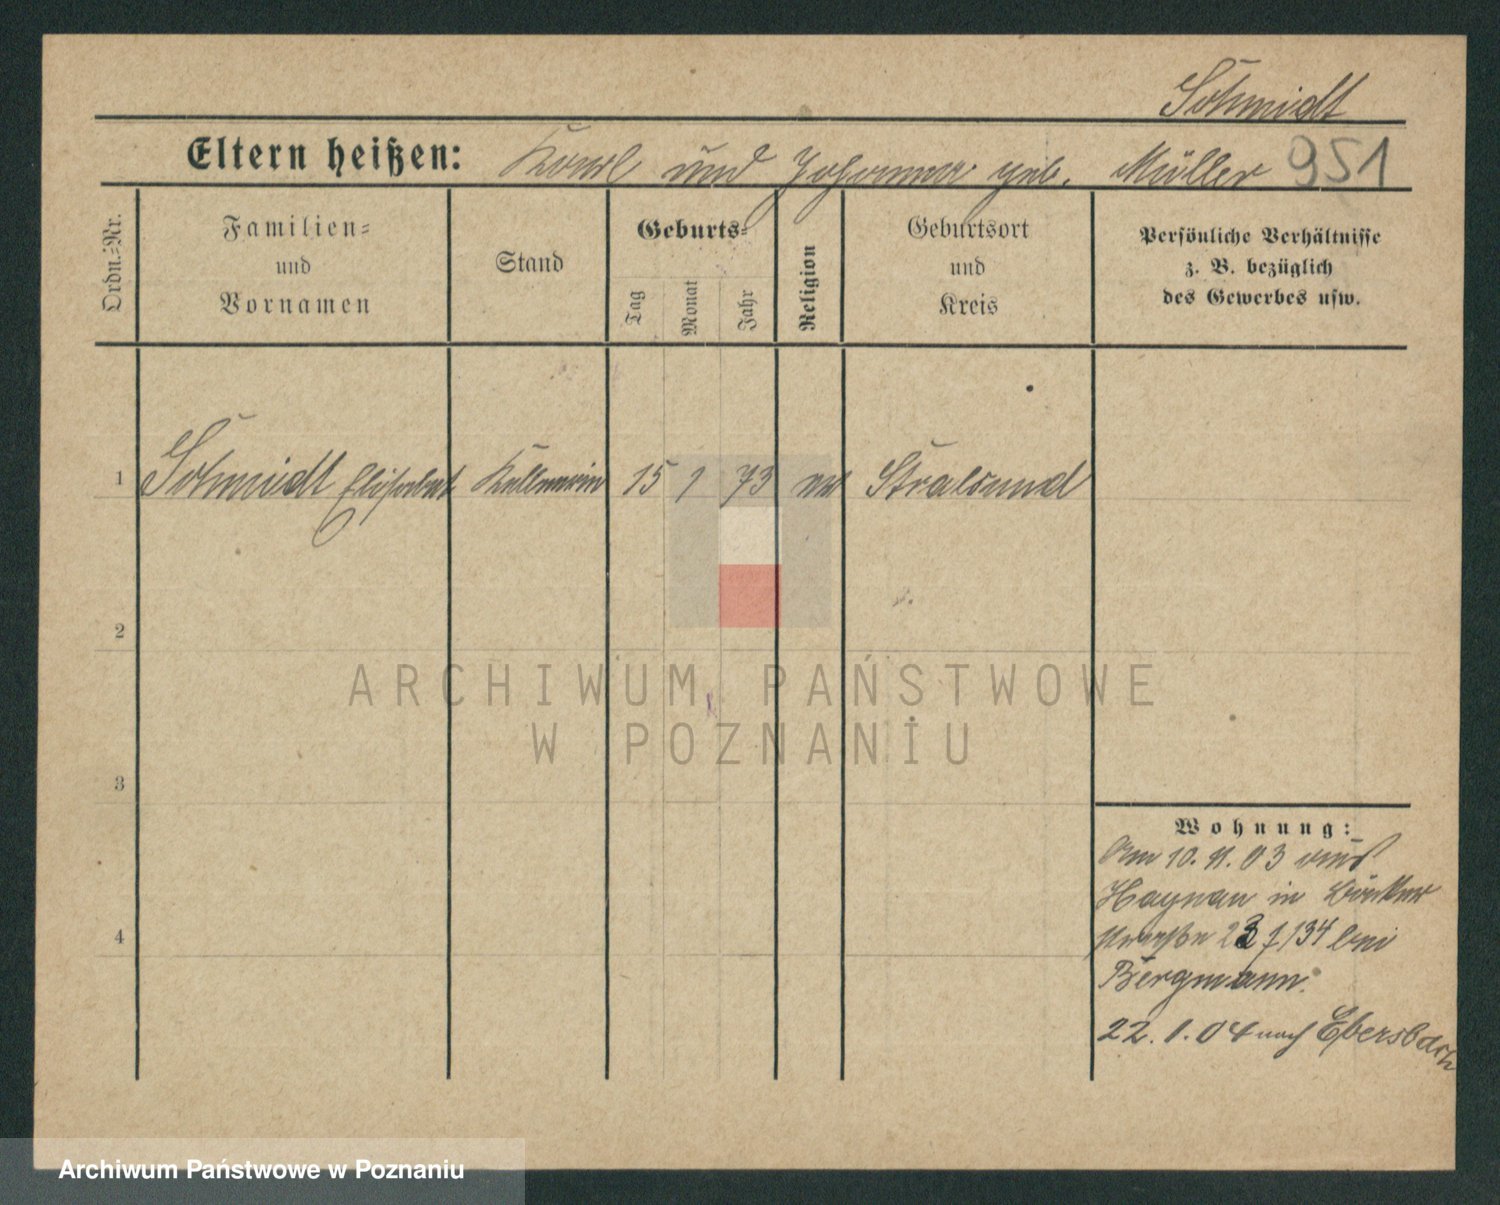 Schmidt
Eltern heißen: Karl und Johanna geb. Müller 951
Ordn.-Nr.
Familien-
und
Vornamen
Stand
Geburts-
Tag
Monat
Jahr
Religion
Geburtsort
und
Kreis
Persönliche Verhältnisse
z. B. bezüglich
des Gewerbes usw.
1 Schmidt Elisabet Kellnerin 15 1 73 ev Stralsund
2
3
4
Wohnung:
Am 10. 11. 03 aus
Haynau in
straße 23 I/134 bei
Bergmann.
22. 1. 04 nach Ebersbach
ARCHIWUM PAŃSTWOWE
W POZNANIU
Archiwum Państwowe w Poznaniu